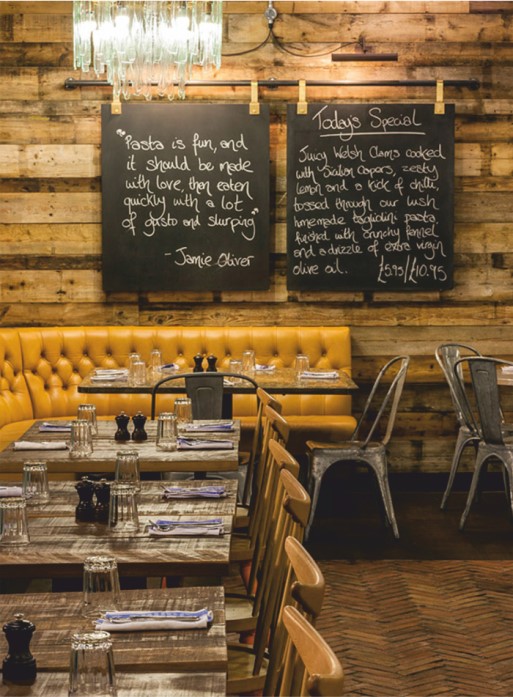 "Pasta is fun, and
it should be made
with love, then eaten
quickly with a lot
of gusto and slurping"
- Jamie Oliver
Today's Special
Juicy Welsh Clams cooked
with Sicilian Capers, zesty
lemon and a kick of chilli,
tossed through our lush
homemade tagliolini pasta
finished with crunchy fennel
and a drizzle of extra virgin
olive oil. £5.95/£10.95